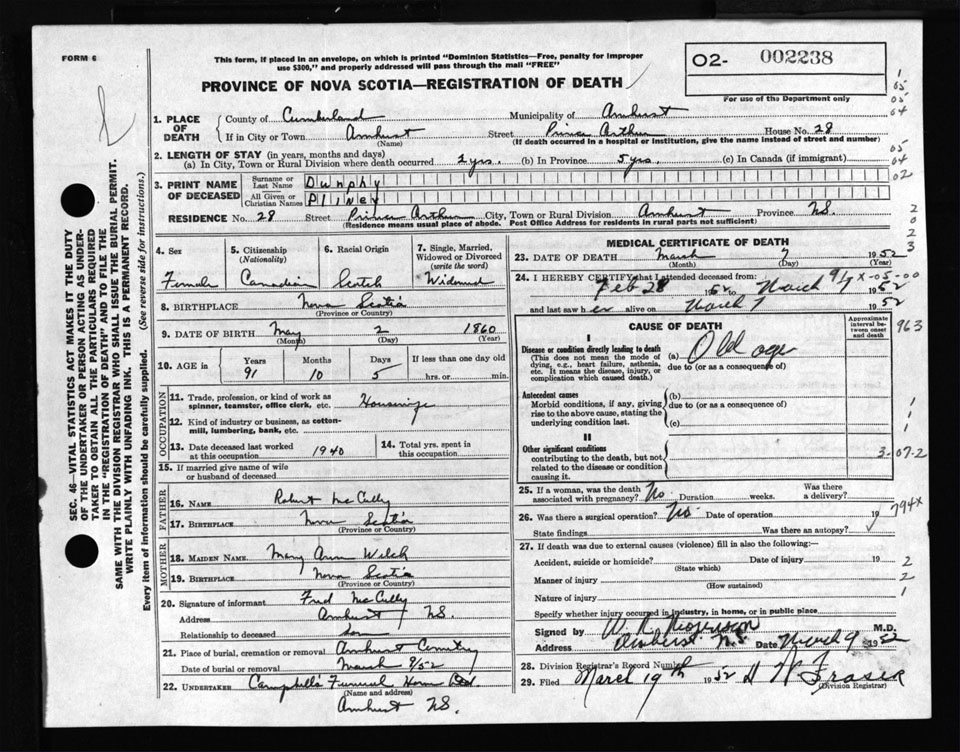 FORM 6
This form, if placed in an envelope, on which is printed "Dominion Statistics—Free, penalty for improper
use $300," and properly addressed will pass through the mail "FREE"
O2- 002238
For use of the Department only
PROVINCE OF NOVA SCOTIA—REGISTRATION OF DEATH
1. PLACE OF DEATH
County of Cumberland Municipality of Amherst
If in City or Town Amherst Street Prince Arthur House No. 28
(Name) (If death occurred in a hospital or institution, give the name instead of street and number)
2. LENGTH OF STAY (in years, months and days)
(a) In City, Town or Rural Division where death occurred 2 yrs. (b) In Province 5 yrs. (c) In Canada (if immigrant)
3. PRINT NAME OF DECEASED
Surname or Last Name Dunphy
All Given or Christian Names Pliney
RESIDENCE No. 28 Street Prince Arthur City, Town or Rural Division Amherst Province N.S.
(Residence means usual place of abode. Post Office Address for residents in rural parts not sufficient)
4. Sex Female
5. Citizenship (Nationality) Canadian
6. Racial Origin Scotch
7. Single, Married, Widowed or Divorced (write the word) Widowed
8. BIRTHPLACE Nova Scotia
(Province or Country)
9. DATE OF BIRTH May 2 1860
(Month) (Day) (Year)
10. AGE in Years 91 Months 10 Days 5 If less than one day old
hrs. or min.
OCCUPATION
11. Trade, profession, or kind of work as
spinner, teamster, office clerk, etc. Housewife
12. Kind of industry or business, as cotton-
mill, lumbering, bank, etc.
13. Date deceased last worked
at this occupation 1940
14. Total yrs. spent in
this occupation
15. If married give name of wife
or husband of deceased
FATHER
16. NAME Robert McCully
17. BIRTHPLACE Nova Scotia
(Province or Country)
MOTHER
18. MAIDEN NAME Mary Ann Welch
19. BIRTHPLACE Nova Scotia
(Province or Country)
20. Signature of informant Fred McCully
Address Amherst N.S.
Relationship to deceased Son
21. Place of burial, cremation or removal Amherst Cemetery
Date of burial or removal March 9/52
22. UNDERTAKER Campbell's Funeral Home Ltd.
(Name and address)
Amherst N.S.
MEDICAL CERTIFICATE OF DEATH
23. DATE OF DEATH March 7 1952
(Month) (Day) (Year)
24. I HEREBY CERTIFY that I attended deceased from
Feb 28 1952 to March 7 1952
and last saw her alive on March 7 1952
CAUSE OF DEATH
Approximate interval between onset and death
I
Disease or condition directly leading to death
(This does not mean the mode of
dying, e.g., heart failure, asthenia,
etc. It means the disease, injury, or
complication which caused death.)
(a) Old age
due to (or as a consequence of)
Antecedent causes
Morbid conditions, if any, giving
rise to the above cause, stating the
underlying condition last.
(b)
due to (or as a consequence of)
(c)
II
Other significant conditions
contributing to the death, but not
related to the disease or condition
causing it.
25. If a woman, was the death
associated with pregnancy? No Duration weeks. Was there
a delivery?
26. Was there a surgical operation? No. Date of operation 19
State findings Was there an autopsy?
27. If death was due to external causes (violence) fill in also the following:—
Accident, suicide or homicide? Date of injury 19
(State which)
Manner of injury
(How sustained)
Nature of injury
Specify whether injury occurred in industry, in home, or in public place
Signed by W. R. M.D.
Address Amherst N.S. Date March 9 1952
28. Division Registrar's Record Number
29. Filed March 19th 1952 Fraser
(Division Registrar)
1
05
05
04
05
04
02
2
0
2
3
x-05-00
963
1
1
3-07-2
794x
2
2
1
SEC. 46—VITAL STATISTICS ACT MAKES IT THE DUTY
OF THE UNDERTAKER OR PERSON ACTING AS UNDER-
TAKER TO OBTAIN ALL THE PARTICULARS REQUIRED
IN THE "REGISTRATION OF DEATH" AND TO FILE THE
SAME WITH THE DIVISION REGISTRAR WHO SHALL ISSUE THE BURIAL PERMIT.
WRITE PLAINLY WITH UNFADING INK. THIS IS A PERMANENT RECORD.
Every item of information should be carefully supplied. (See reverse side for instructions.)